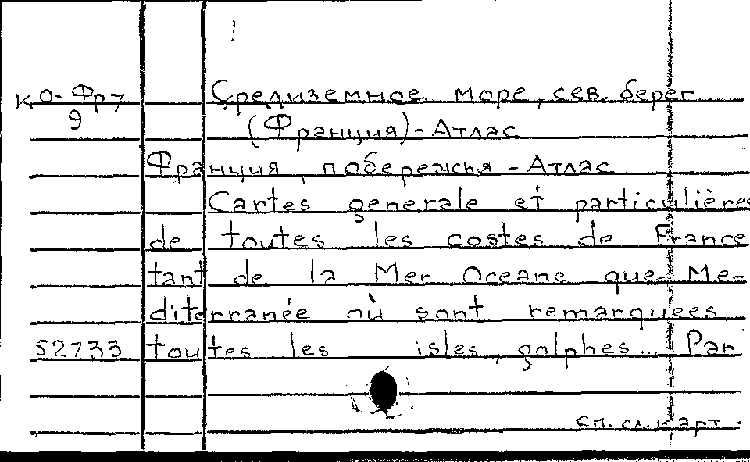 КО-Фр7 Средиземное море, сев. берег
9 (Франция)-Атлас
Франция, побережья - Атлас
Cartes generale et particulières
de toutes les costes de France
tant de la Mer Oceane que Me-
diterranée où sont remarquees
52733 toutes les isles, golphes... Par
сл. карт.